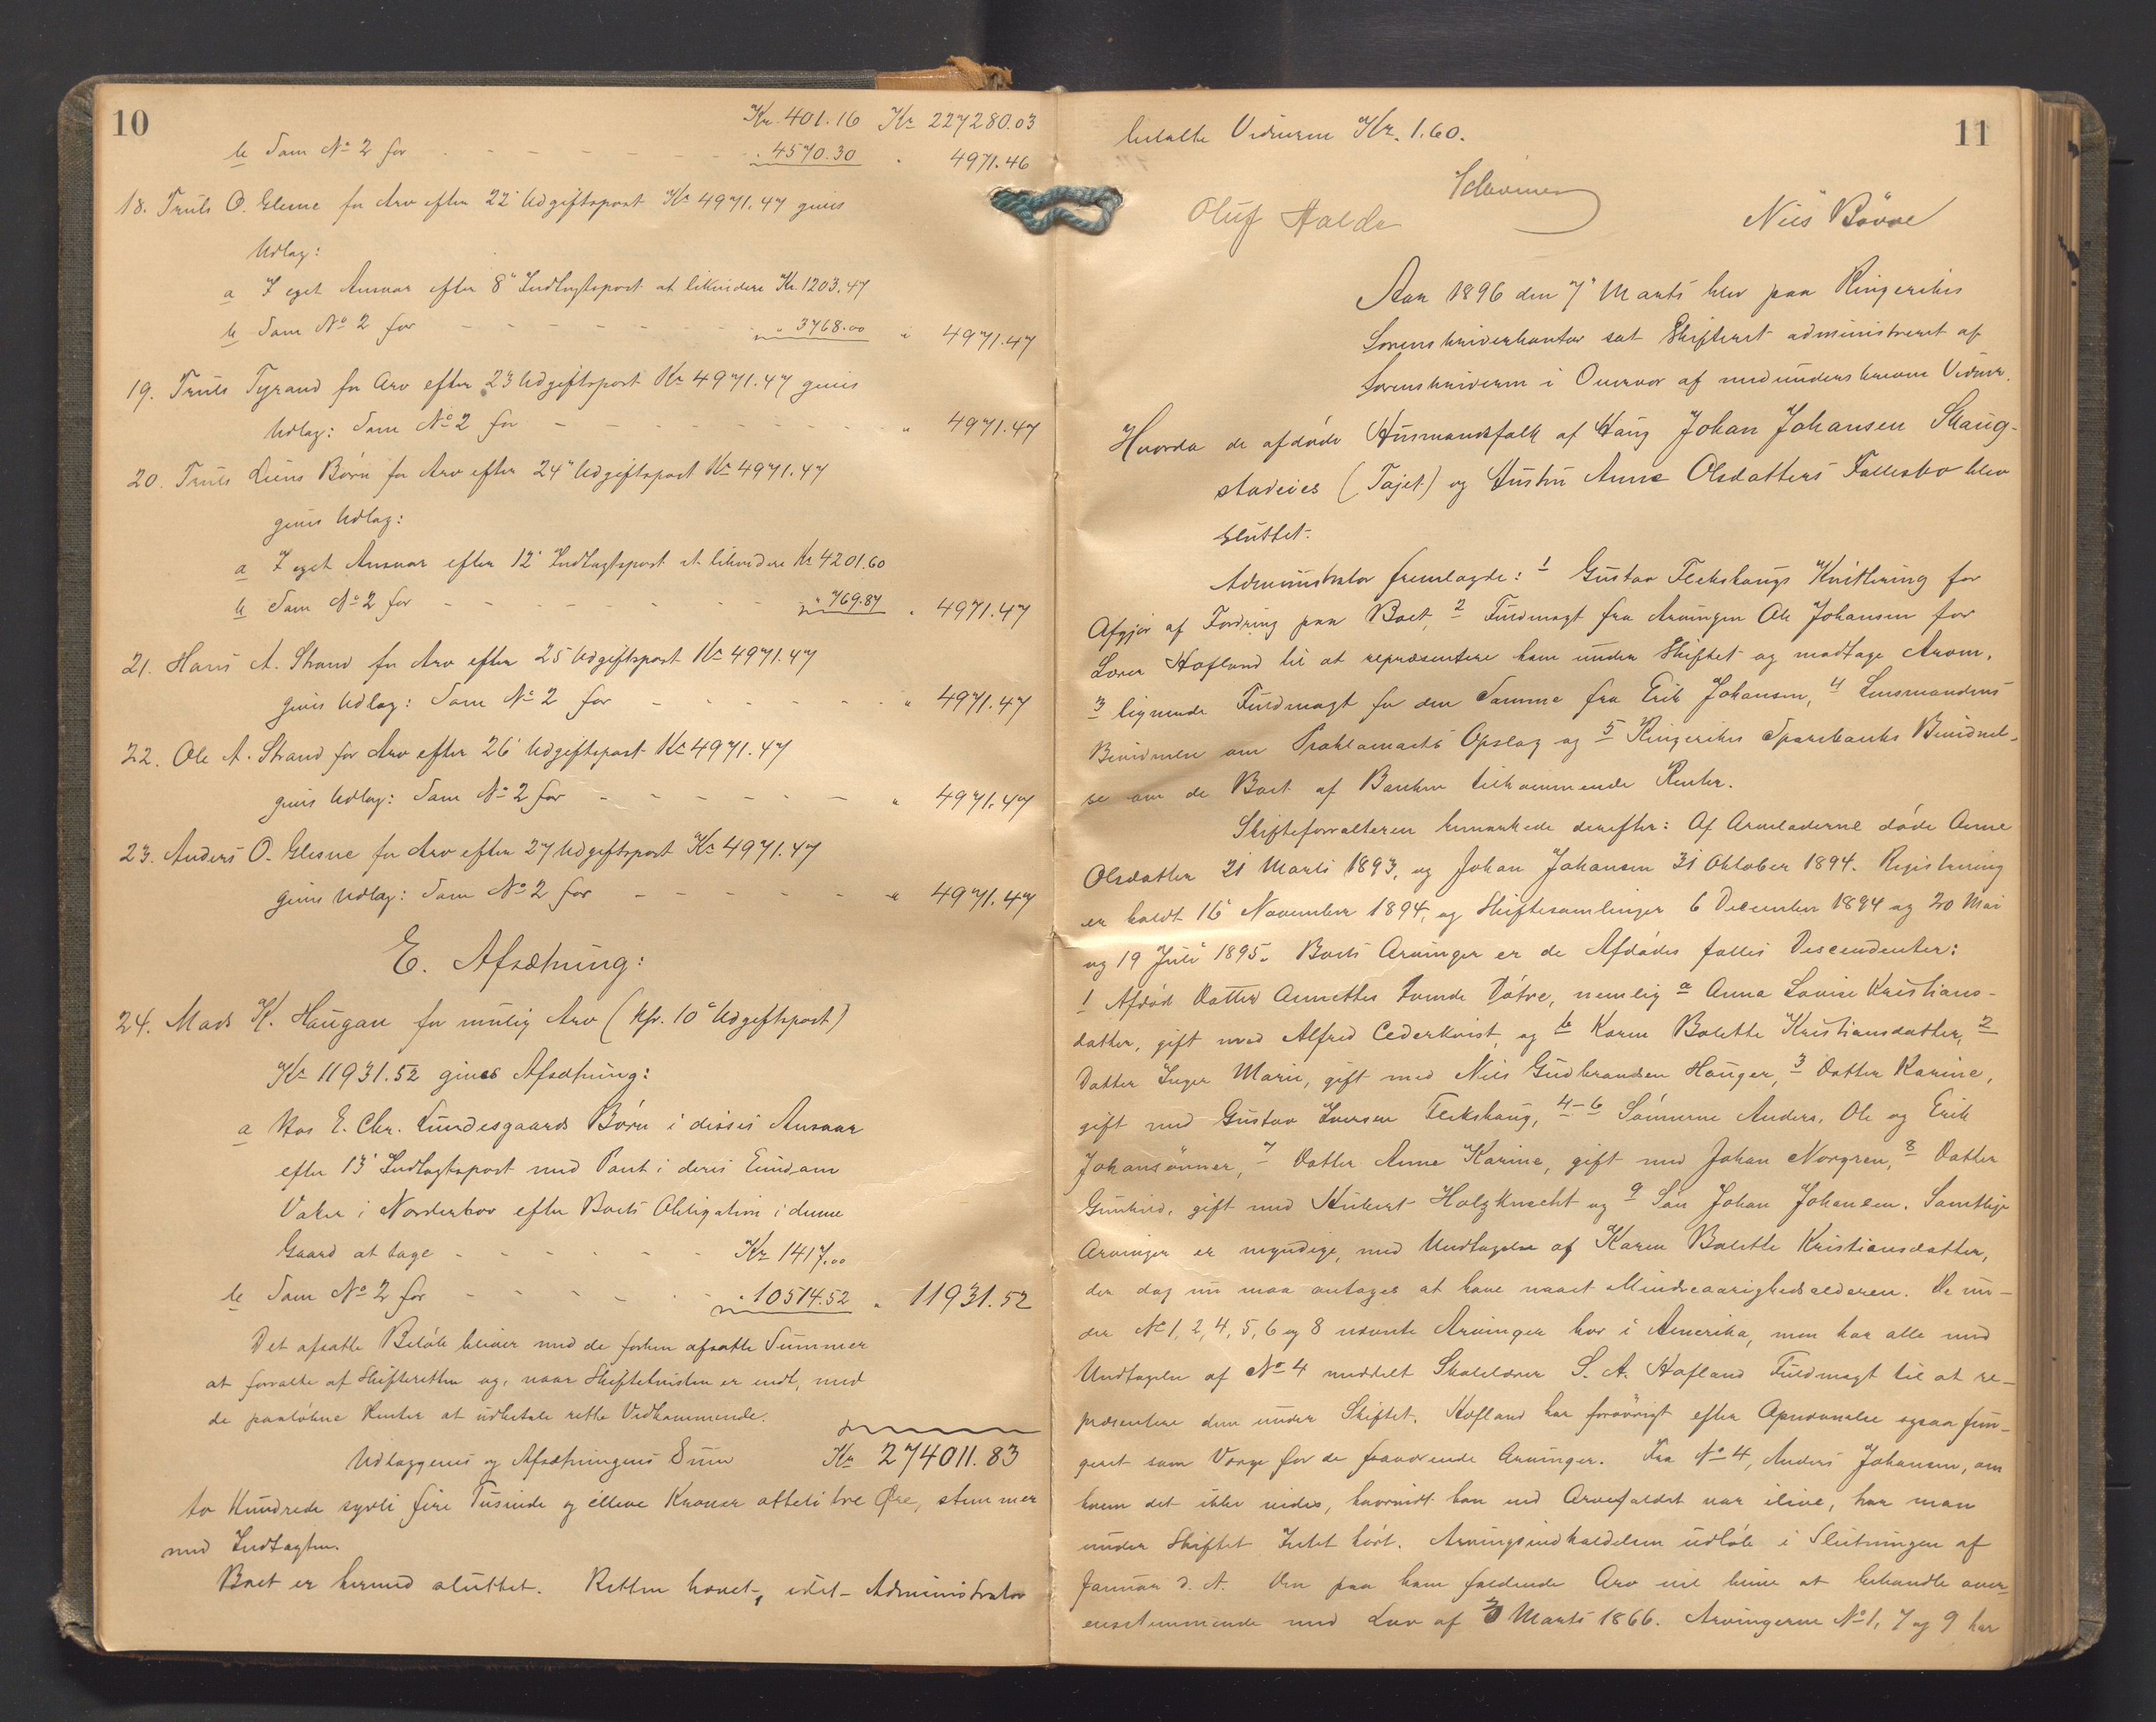 10
Kr. 401.16 Kr 227280.03
b Sam No 2 for - - - - - - - " 4570.30 " 4971.46
18. Truls O. Glesne for Arv efter 22' Udgiftspost Kr 4971.47 gives
Udlag:
a I eget Ansvar efter 8' Indtægtspost at likvidere Kr. 1203.47
b Sam No 2 for - - - - - - " 3768.00 " 4971.47
19. Truls Tyrand for Arv efter 23 Udgiftspost Kr 4971.47 gives
Udlag: Sam No 2 for - - - - - - - " 4971.47
20. Truls Liens Børn for Arv efter 24' Udgiftspost Kr 4971.47
gives Udlag:
a I eget Ansvar efter 12' Indtægtspost at likvidere Kr 4201.60
b Sam No 2 for - - - - - - " 769.87 " 4971.47
21. Hans A. Strand for Arv efter 25 Udgiftspost Kr 4971.47
gives Udlag: Sam No 2 for - - - - - - " 4971.47
22. Ole A. Strand for Arv efter 26' Udgiftspost Kr 4971.47
gives Udlag: Sam No 2 for - - - - - - " 4971.47
23. Anders O. Glesne for Arv efter 27 Udgiftspost Kr 4971.47
gives Udlag: Sam No 2 for - - - - - - " 4971.47
E. Afsætning:
24. Mads K. Haugan for mulig Arv (kfr. 10' Udgiftspost)
Kr 11931.52 gives Afsætning:
a Hos E. Chr. Lundesgaards Børn i disses Ansvar
efter 13' Indtægtspost med Pant i deres Eiendom
Vaker i Norderhov efter Boets Obligation i denne
Gaard at tage - - - - - - Kr 1417.00
b Sam No 2 for - - - - - " 10514.52 " 11931.52
Det afsatte Beløb bliver med de forhen afsatte Summer
at forvalte af Skifteretten og, naar Skiftetvisten er endt, med
de paaløbne Renter at udbetale rette Vedkommende.
Udlæggenes og Afsætningens Sum Kr 274011.83
to Hundrede sytti fire Tusinde og elleve Kroner ottetitre Øre, stemmer
med Indtægten.
Boet er hermed sluttet. Retten hævet, idet Administrator
11
betalte Vidnerne Kr. 1.60.
Oluf Halde Nils Bövre
Aar 1896 den 7' Marts blev paa Ringerikes
Sorenskriverkontor sat Skifteret administreret af
Sorenskriveren i Overvær af medunderskrevne Vidner,
Hvorda de afdøde Husmandsfolk af Haug Johan Johansen Skaug-
stadeies (Tajet) og Hustru Anne Olsdatters Fællesbo blev
sluttet.
Administrator fremlagde: 1 Gustav Flekshaugs Kvittering for
Afgjør af Fordring paa Boet, 2 Fuldmagt fra Arvingen Ole Johansen for
Lærer Hofland til at repræsentere ham under Skiftet og modtage Arven,
3 lignende Fuldmagt for den Samme fra Erik Johansen, 4 Lensmandens
Bevidnelse om Proklamaets Opslag og 5 Ringerikes Sparebanks Bevidnel-
se om de Boet af Banken tilkommende Renter.
Skifteforvalteren bemærkede derefter: Af Arveladerne døde Anne
Olsdatter 21 Marts 1893, og Johan Johansen 31 Oktober 1894. Registrering
er holdt 16' November 1894, og Skiftesamlinger 6 December 1894 og 20 Mai
og 19 Juli 1895. Boets Arvinger er de Afdødes fælles Descendenter:
1 Afdød Datter Annettes tvende Døtre, nemlig a Anna Lovise Kristians-
datter, gift med Alfred Cederkvist, og b Karen Bolette Kristiansdatter, 2
Datter Inger Marie, gift med Nils Gudbrandsen Hauger, 3 Datter Karine,
gift med Gustav Iversen Flekshaug, 4-6 Sønnerne Anders, Ole og Erik
Johansønner, 7 Datter Anne Karine, gift med Johan Norgren, 8 Datter
Gunhild, gift med Hubert Holzknecht og 9 Søn Johan Johansen. Samtlige
Arvinger er myndige, med Undtagelse af Karen Bolette Kristiansdatter,
der dog nu maa antages at have naaet Mindreaarighedsalderen. De un-
der No 1, 2, 4, 5, 6 og 8 nævnte Arvinger bor i Amerika, men har alle med
Undtagelse af No 4 meddelt Skolelærer S. A. Hofland Fuldmagt til at re-
præsentere dem under Skiftet. Hofland har forøvrigt efter Opnævnelse ogsaa fun-
geret som Værge for de fraværende Arvinger. Fra No 4, Anders Johansen, om
hvem det ikke vides, hvorvidt han ved Arvefaldet var ilive, har man
under Skiftet Intet hørt. Arvingsindkaldelsen udløb i Slutningen af
Januar d. A. Den paa ham faldende Arv vil blive at behandle over-
ensstemmende med Lov af 3 Marts 1866. Arvingerne No 1, 7 og 9 har